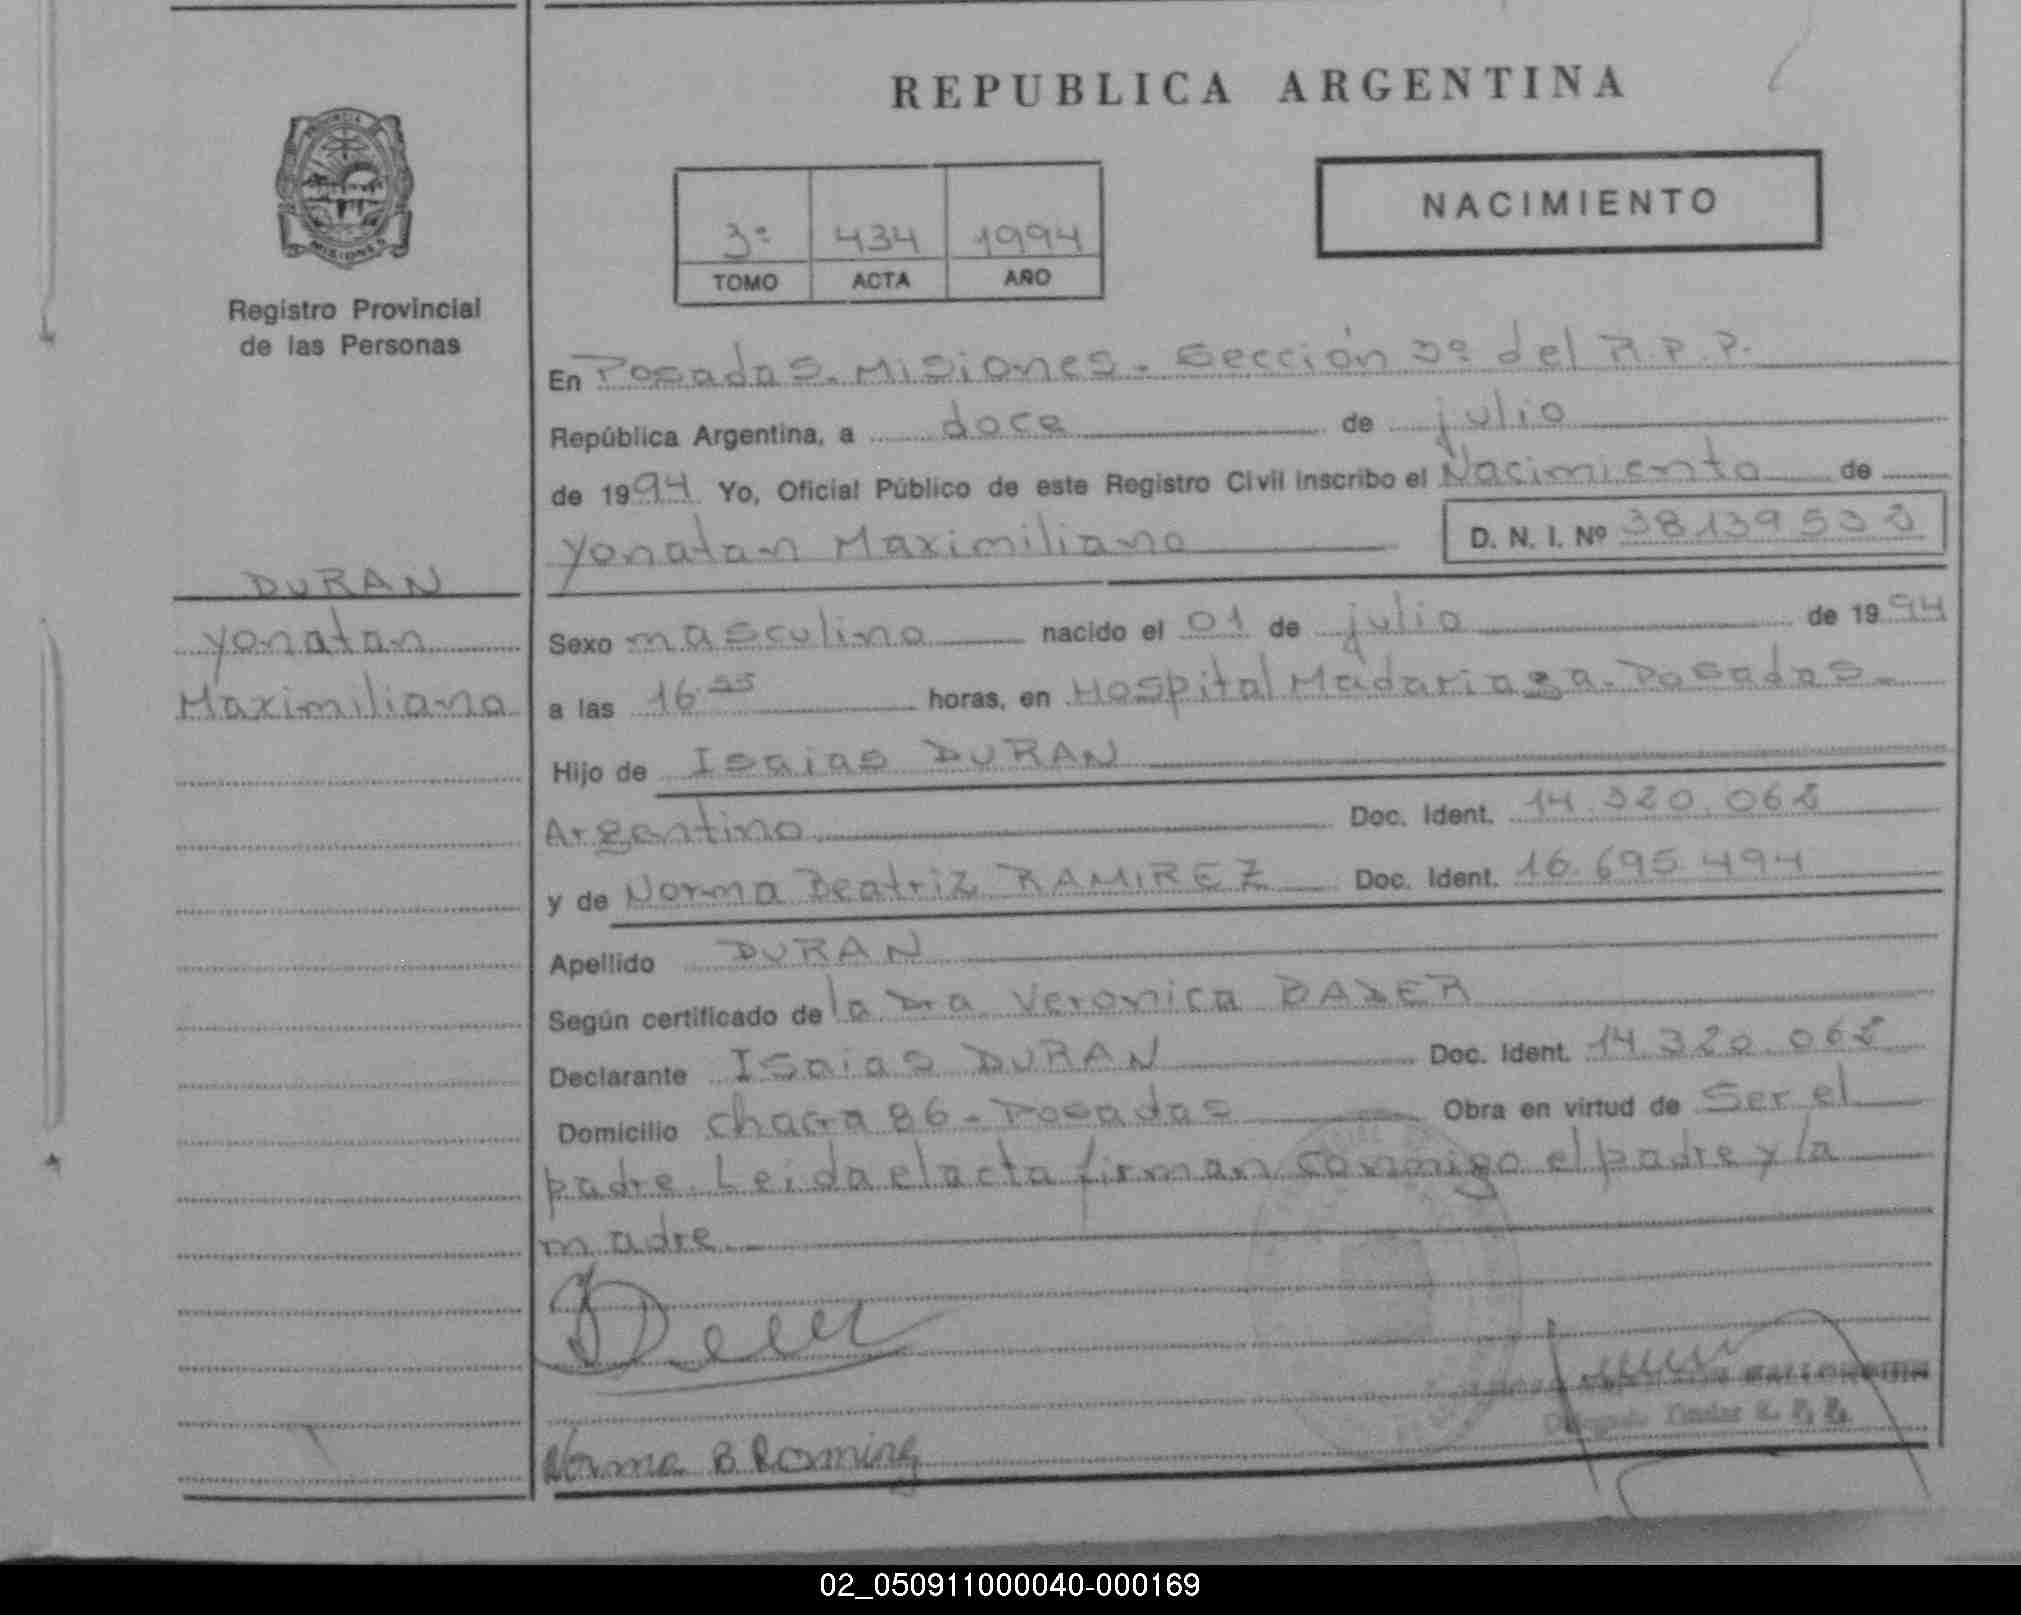 REPUBLICA ARGENTINA
PROVINCIA
MISIONES
Registro Provincial
de las Personas
3º 434 1994
TOMO ACTA AÑO
NACIMIENTO
En Posadas. Misiones. Sección 3º del R.P.P.
República Argentina, a doce de julio
de 1994 Yo, Oficial Público de este Registro Civil inscribo el Nacimiento de
Yonatan Maximiliano D. N. I. Nº 38139533
DURAN
Yonatan
Maximiliano
Sexo masculino nacido el 01 de julio de 1994
a las 16 55 horas, en Hospital Madariaga. Posadas.
Hijo de Isaias DURAN
Argentino Doc. Ident. 14.320.062
y de Norma Beatriz RAMIREZ Doc. Ident. 16.695.494
Apellido DURAN
Según certificado de la Dra Veronica BADER
Declarante Isaias DURAN Doc. Ident. 14.320.062
Domicilio Chacra 86 - Posadas Obra en virtud de Ser el
padre. Leida el acta firman conmigo el padre y la
madre.
Titular R. P. P.
Norma B Ramirez
02_050911000040-000169